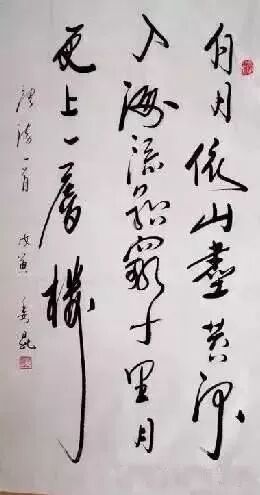 白日依山盡黄河
入海流欲窮千里目
更上一層樓
唐詩一首